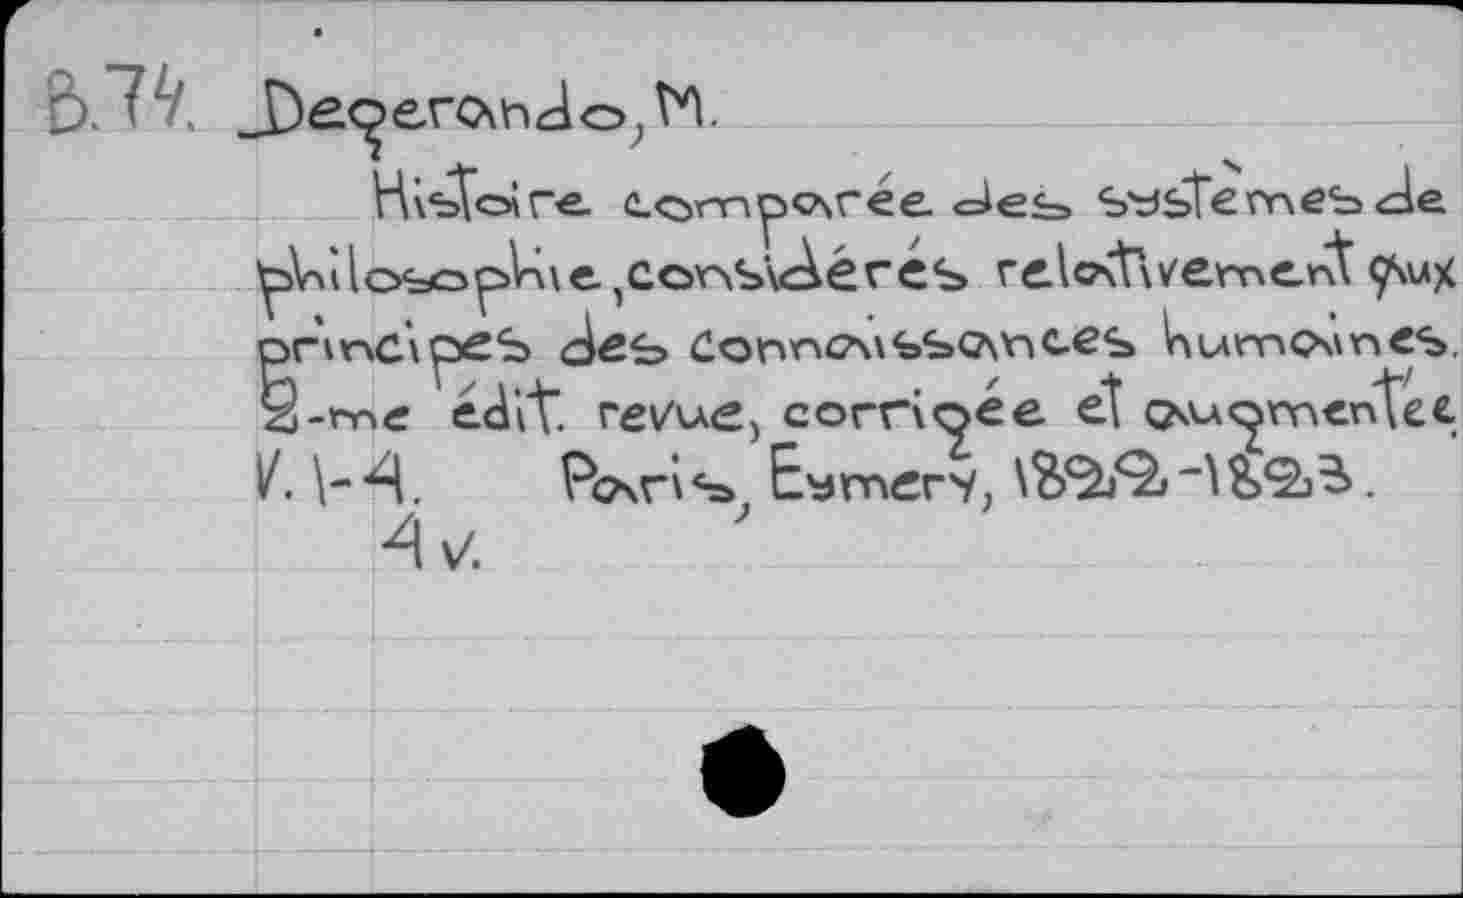 B.74. Degerando, M.
Histoire comparée des systèmes de
philosophie, considérés relativement aux
principes des connaissances humaines.
2-me édit. revue, corrigée et augmentée.
V. 1-4. Paris, Eymery, 1822-1823.
4 v.